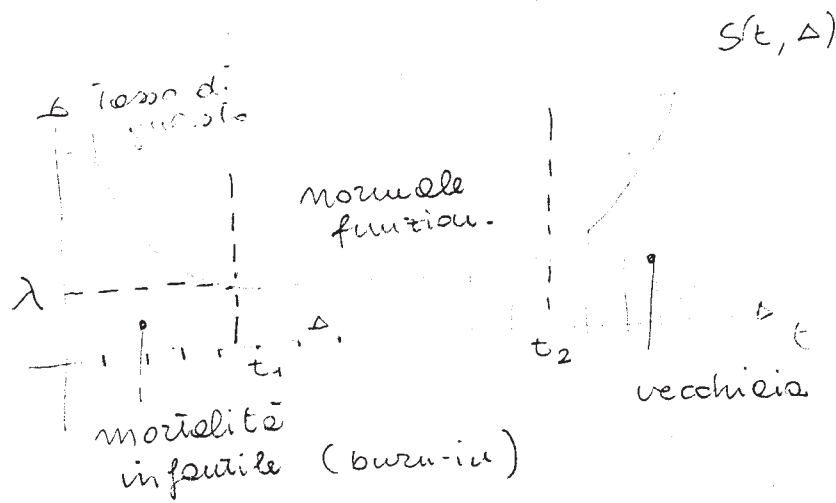 S(t, Δ)
Tasso di
guasto
normale
funzion.
λ
t₁
Δ
t₂
t
vecchiaia
mortalità
infantile (burn-in)